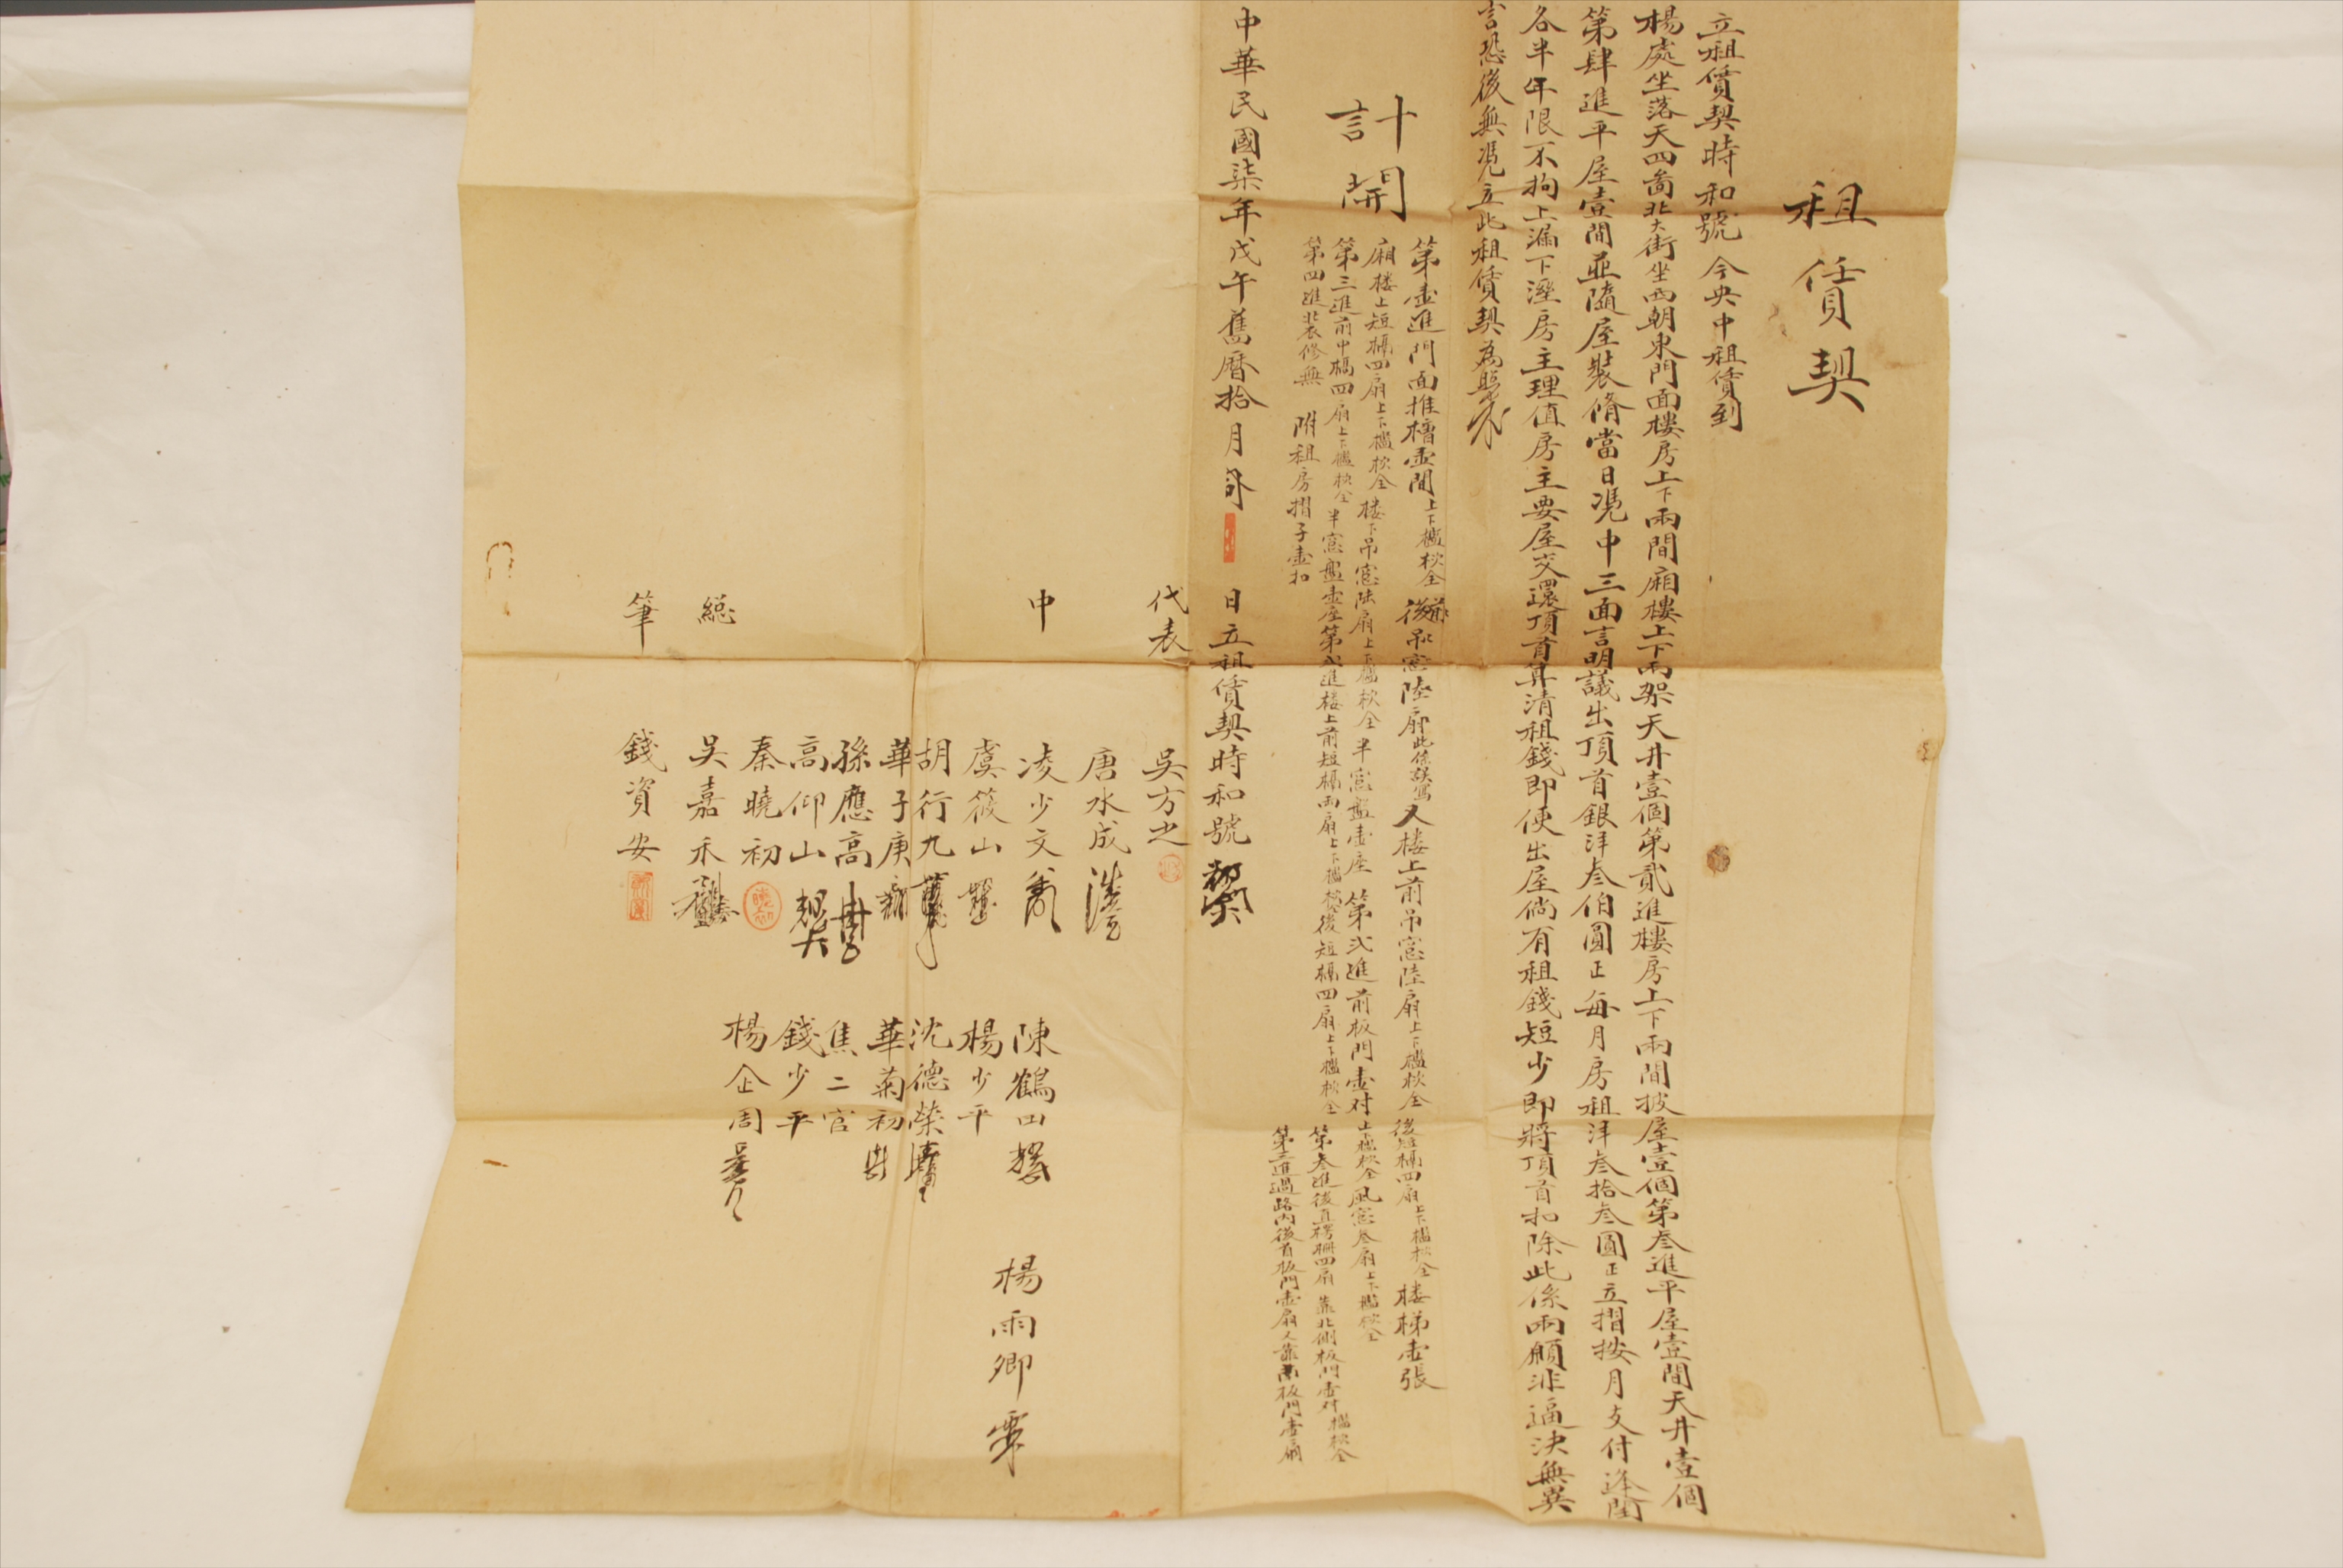 租賃契
立租賃契時和號今央中租賃到
楊處坐落天四啚北大街坐西朝東門面樓房上下兩間廂樓上下兩架天井壹個第貳進樓房上下兩間披屋壹個第叁進平屋壹間天井壹個
第肆進平屋壹間並隨屋裝脩當日憑中三面言明議出頂首銀洋叁佰圓正每月房租洋叁拾叁圓正立摺按月支付逢閏
各半年限不拘上漏下溼房主理值房主要屋交還頂首算清租錢即使出屋倘有租錢短少即將頂首扣除此係兩願非逼決無異
言恐後無憑立此租賃契為照
計開
第壹進門面推槽壹間上下檻松全後吊窓陸扇此係誤寫又楼上前吊窓陸扇上下檻松全後短槅四扇上下檻松全楼梯壹張
廂楼上短槅四扇上下檻松全楼下吊窓陆扇上下檻松全半窓盤壹座第弍進前板門壹对上檻松全風窓叁扇上下檻松全
第三進前中槅四扇上下檻松全半窓盤壹座第弍進楼上前短槅兩扇上下檻松後短槅四扇上下檻松全第叁進後直楞栅四扇靠北側板門壹对檻松全
第四進裝修無附租房摺子壹扣
第三進過路内後首板門壹扇又靠南板門壹扇
中華民國柒年戊午舊曆拾月日立租賃契時和號
代表吳方之
中唐水成
凌少文陳鶴田楊雨卿
虞筱山楊少平
胡行九沈德榮
華子庚華菊初
孫應高焦二官
高仰山錢少平
秦曉初楊企周
總吳嘉禾
筆錢資安